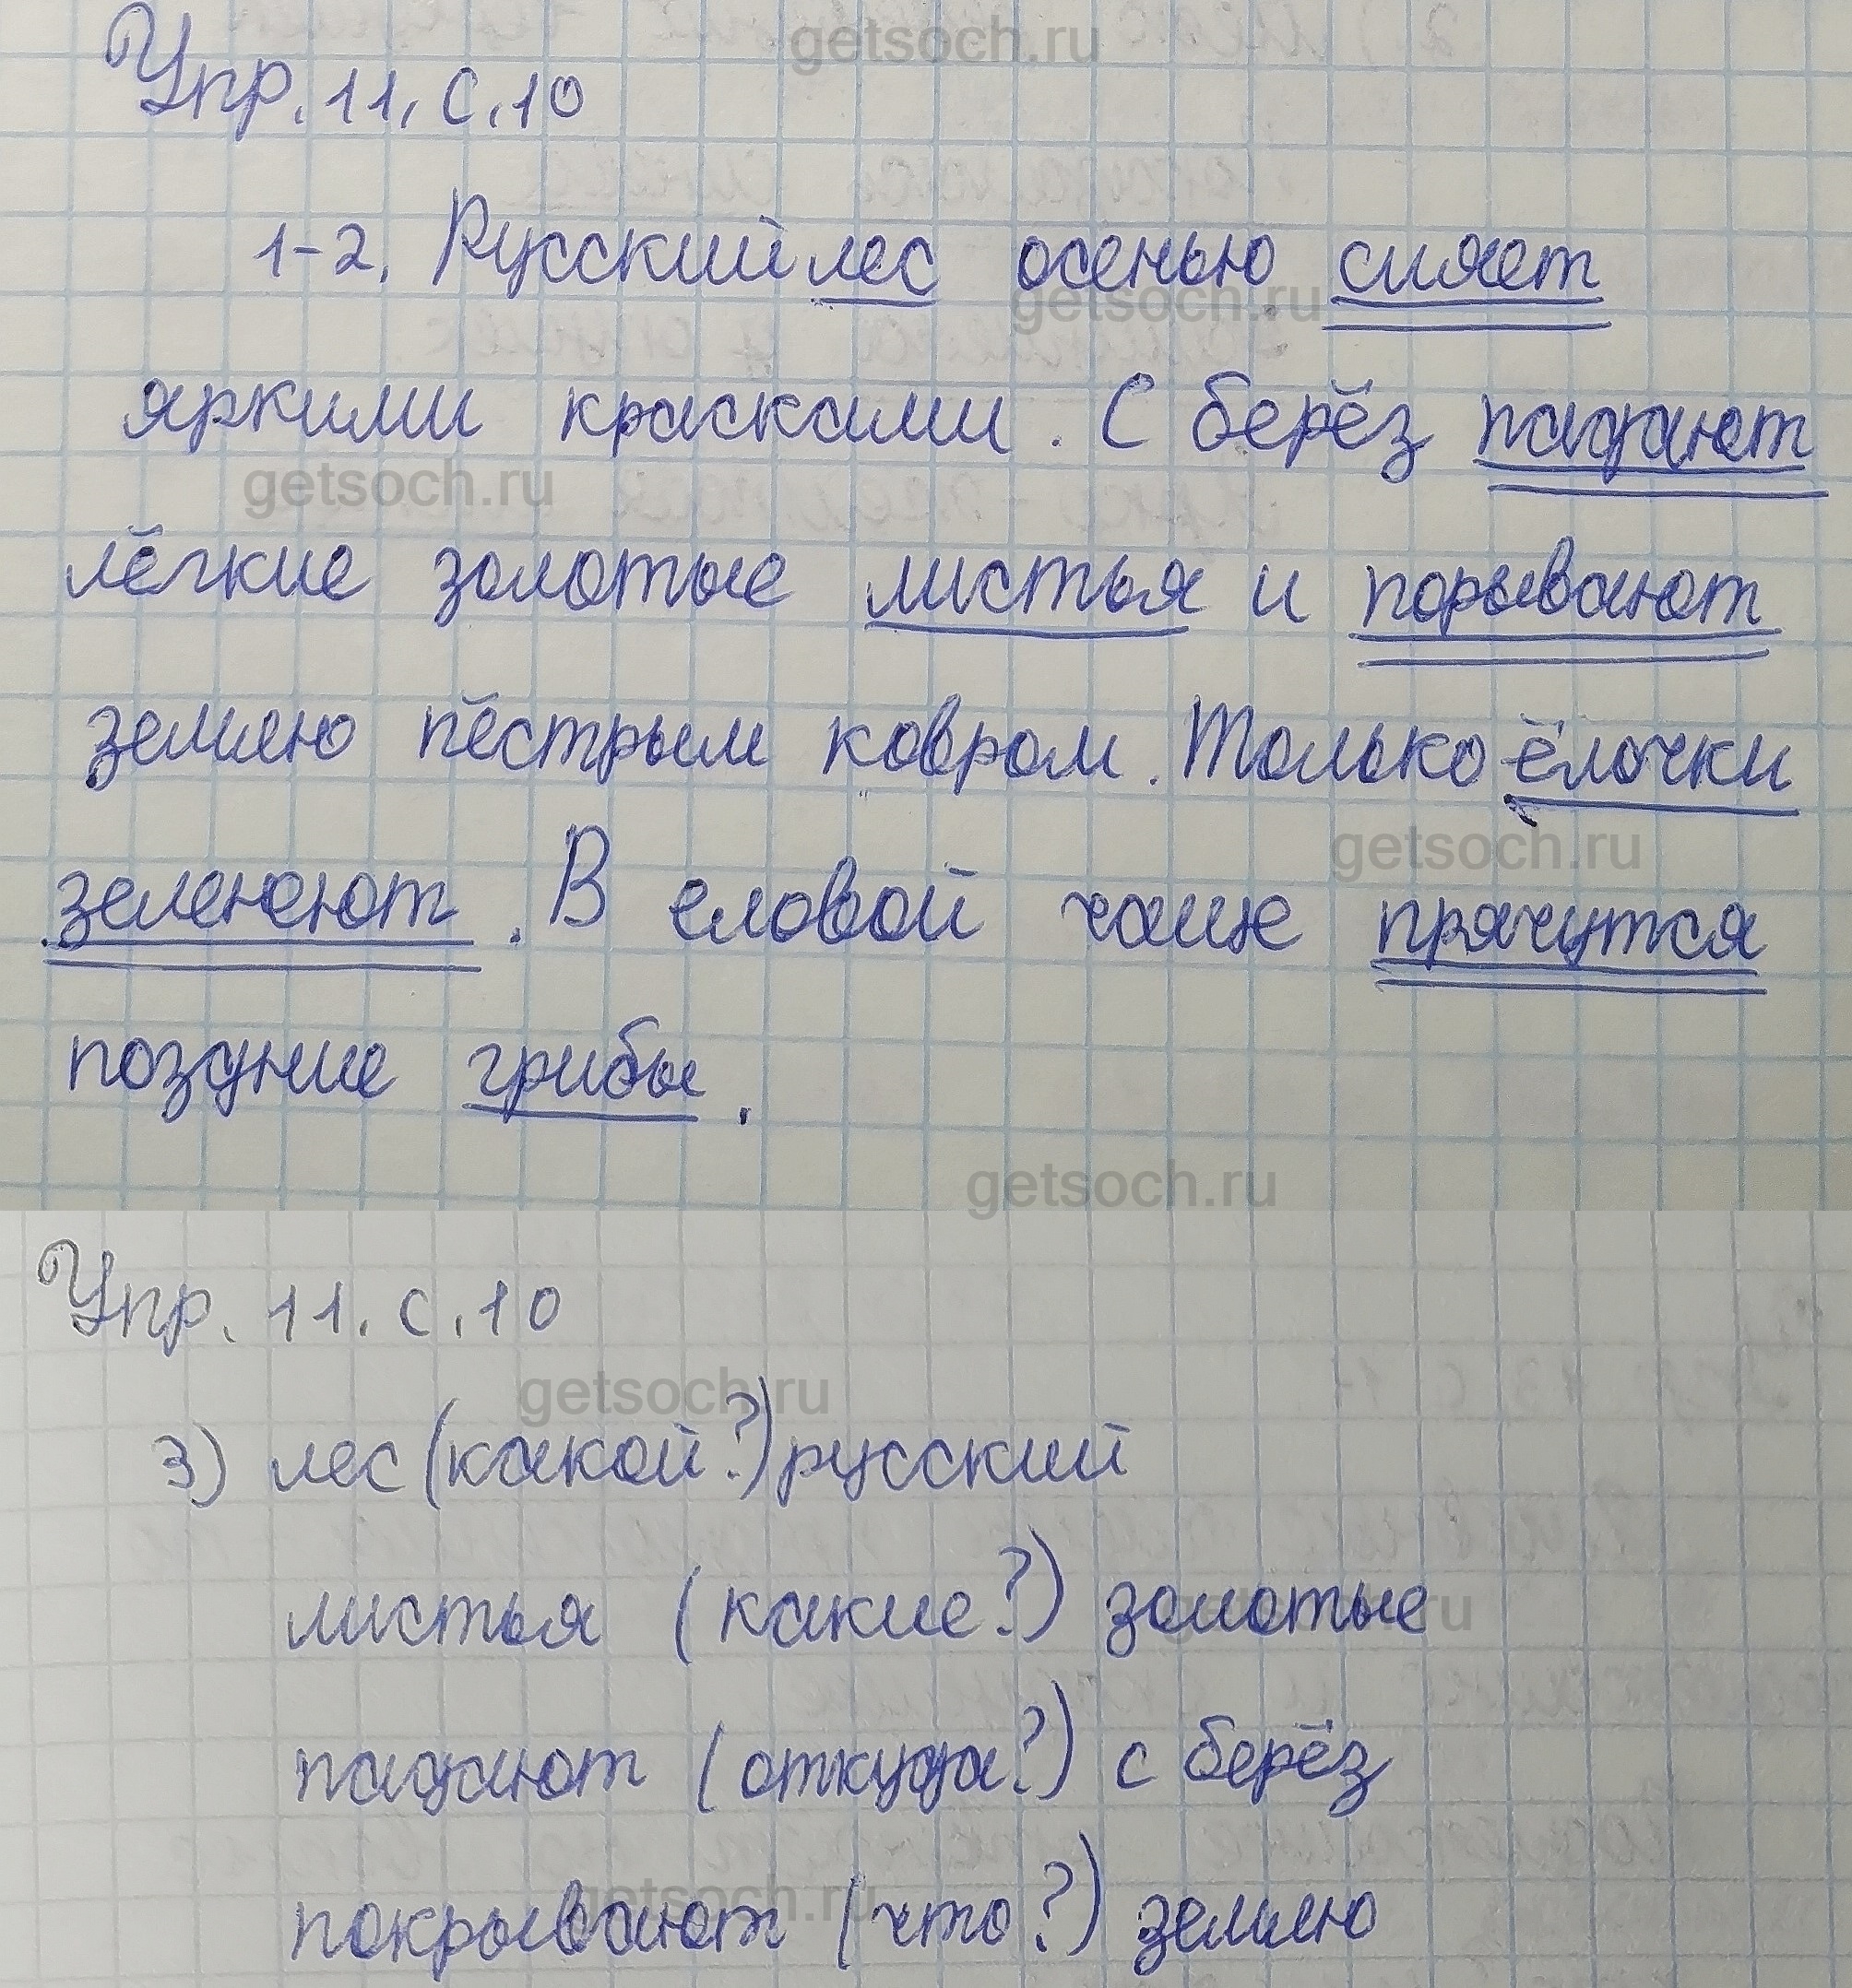 getsoch.ru
Упр. 11, с. 10
1-2. Русский лес осенью сияет
getsoch.ru
яркими красками. С берёз падают
getsoch.ru
лёгкие золотые листья и порывают
землю пёстрым ковром. Только ёлочки
getsoch.ru
зеленеют. В еловой чаще прячутся
поздние грибы.
getsoch.ru
Упр. 11. с. 10
getsoch.ru
3) лес (какой?) русский
листья (какие?) золотые
getsoch.ru
падают (откуда?) с берёз
покрывают (что?) землю
getsoch.ru